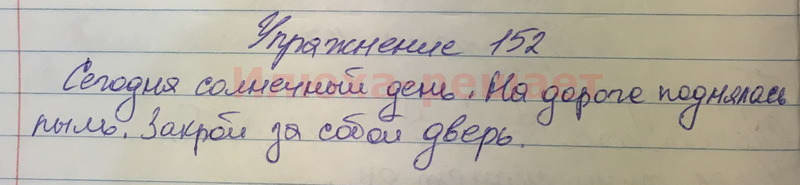 Упражнение 152
Сегодня солнечный день. На дороге поднялась
пыль. Закрой за собой дверь.